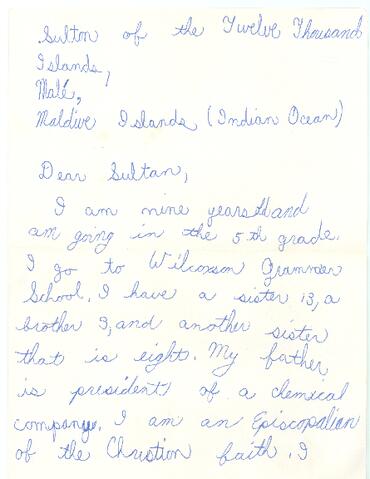 Sulton of the Twelve Thousand
Islands,
Malé,
Maldive Islands (Indian Ocean)
Dear Sultan,
I am nine years old and
am going in the 5th grade.
I go to Wilcoxson Grammer
School. I have a sister 13, a
brother 3, and another sister
that is eight. My father
is president of a chemical
company. I am an Episcopalian
of the Christion faith. I